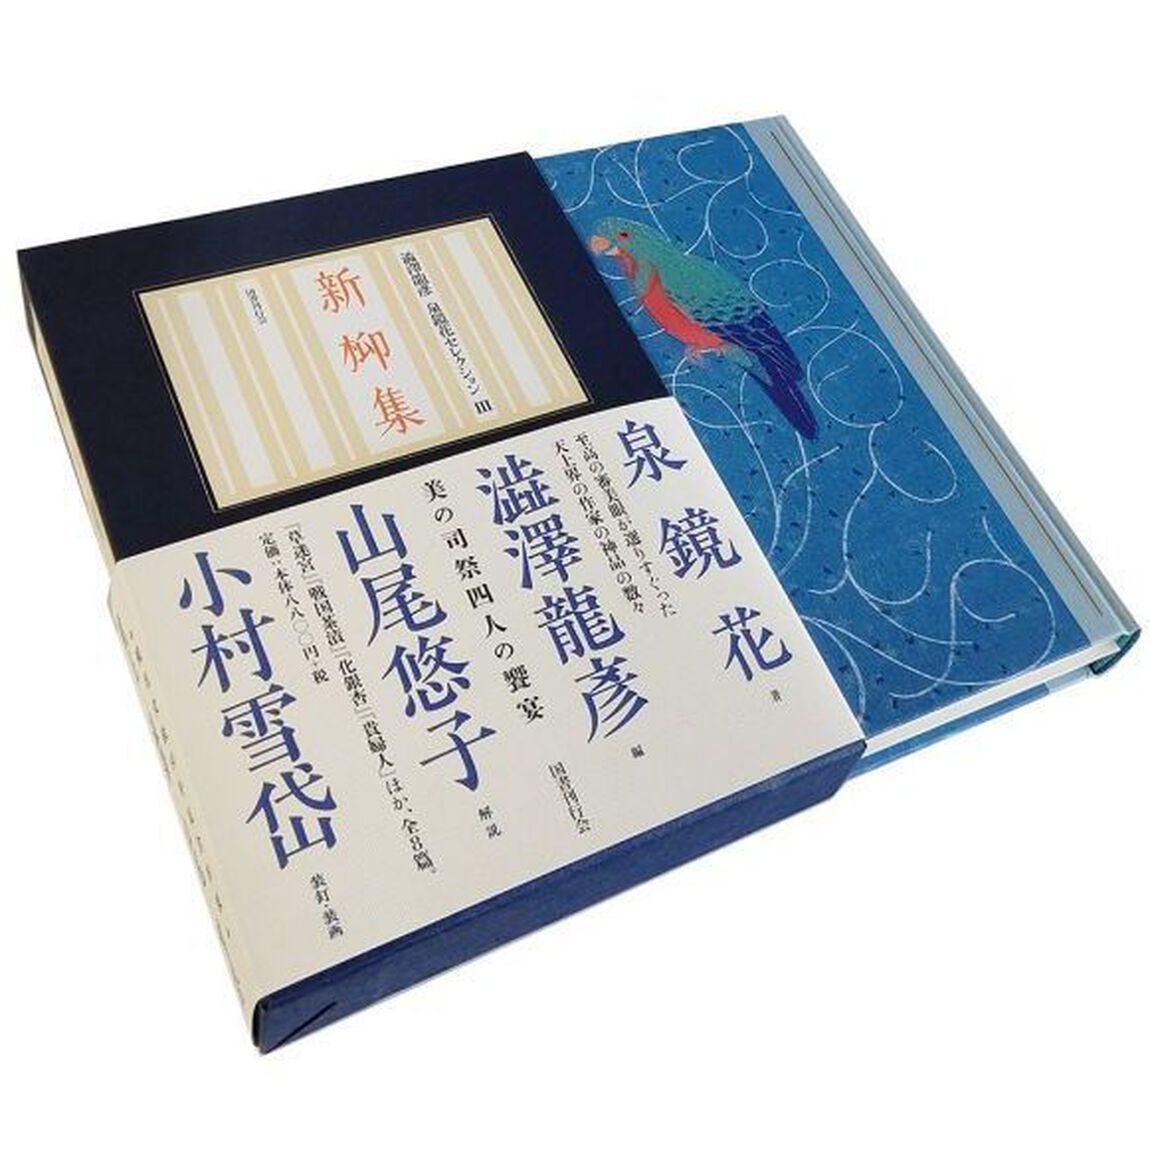 澁澤龍彥 泉鏡花セレクション III
新柳集
国書刊行会
泉鏡花 著
至高の審美眼が選りすぐった
天上界の作家の神品の数々
澁澤龍彥 編
国書刊行会
美の司祭四人の饗宴
山尾悠子 解説
『草迷宮』『戦国茶漬』『化銀杏』『貴婦人』ほか、全8篇。
定価:本体八八〇〇円+税
小村雪岱 装釘・装画